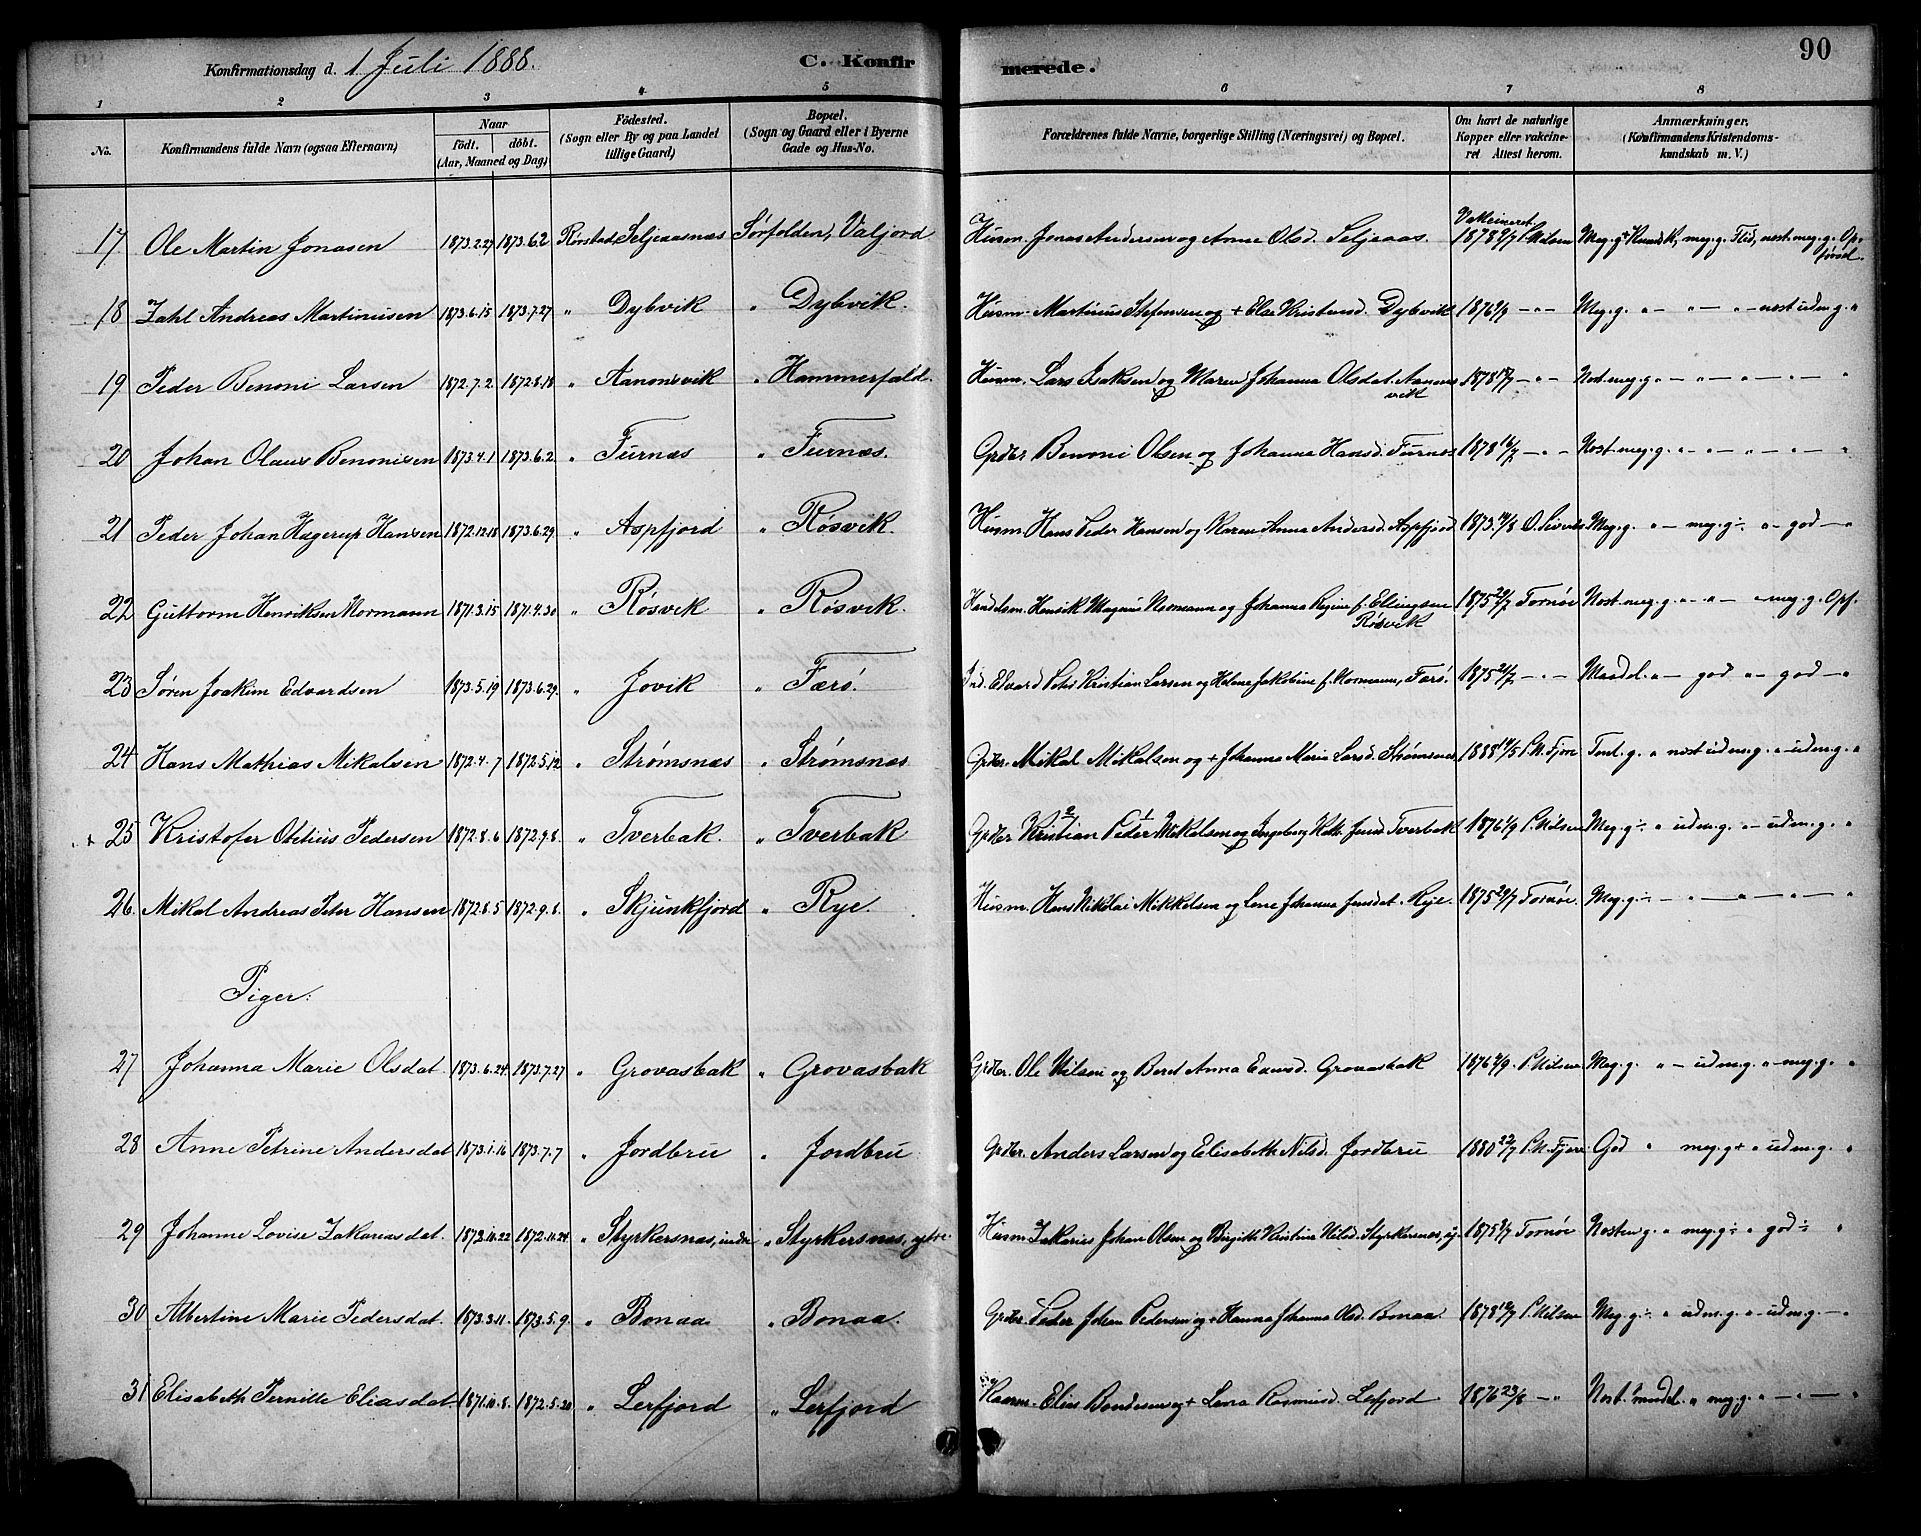 90
Konfirmationsdag d. 1 Juli 1888.
C. Konfirmerede.
1 2 3 4 5 6 7 8
No.
Konfirmandens fulde Navn (ogsaa Efternavn)
Naar
født. døbt.
(Aar, Maaned og Dag)
Fødested.
(Sogn eller By og paa Landet
tillige Gaard)
Bopæl.
(Sogn og Gaard eller i Byerne
Gade og Hus-No.
Forældrenes fulde Navne, borgerlige Stilling (Næringsvei) og Bopæl.
Om havt de naturlige
Kopper eller vakcine-
ret Attest herom.
Anmærkninger,
(Konfirmandens Kristendoms-
kundskab m. V.)
17. Ole Martin Jonasen 1873.2.27 1873.6.2 Rørstad, Seljeaasnæs Sørfolden, Valjord Husm. Jonas Andersen og Anne Olsd. Seljeaas. Vakcineret 1878 9/7 P. Nilsen Meg. g+ Kundsk, meg. g. Flid, nost. meg. g. Op-
førsel.
18 Zahl Andreas Martinusen 1873.6.15 1873.7.27 " Dybvik " Dybvik. Husm. Martinus Stefensen og + Else Kristensd. Dybvik 1876 1/9 — " — Meg. g. " — " — " — nost udm. g. "
19 Peder Benoni Larsen 1872.7.2. 1872.8.18 " Aanonsvik " Hammerfald. Husm. Lars Isaksen og Maren Johanna Olsdat. Aanons
vik 1878 — " — Nost. meg. g. " — " — " — " — "
20 Johan Olaus Benonisen 1873.4.1 1873.6.2 " Furnæs " Furnæs. Grdbr. Benoni Olsen og Johanna Hansd. Furnæs 1878 16/7 — " — Nost. meg. g. " — " — " — " — "
21 Peder Johan Hagerup Hansen 1872.12.18 1873.6.29 " Aspfjord " Røsvik. Husm. Hans Peder Hansen og Karen Anna Andersd. Aspfjord 1873 Meg. g. " — meg. g ÷ " — god — "
22 Guttorm Henriksen Normann 1871.3.15 1871.4.30 " Røsvik " Røsvik. Handelsm. Henrik Magnus Normann og Johanna Regine f. Ellingsen
Røsvik 1875 29/7 Tornøe Nost. meg. g. " — " — " meg. g. Opf.
23 Søren Joakim Edvardsen 1873.5.19 1873.6.29 " Jovik " Færø. Ind. Edvard Kristian Larsen og Helene Jakobine f. Normann, Færø. 1875 — " — Maadel. " — god " — god — "
24 Hans Mathias Mikalsen 1872.4.7 1872.5.12 " Strømsnæs " Strømsnæs Grdbr. Mikal Mikalsen og + Johanna Maria Larsd. Strømsnæs 1888 P. N. Fjære Teml. g. " nost udm. g. " udm. g. "
25 Kristofer Obelius Pedersen 1872.8.6 1872.9.8. " Tverbak. " Tverbak Grdbr. Kristian 2 Peder 1 Mikalsen og Ingeborg Kath. Jensd. Tverbak 1876 1/9 P. Nilsen Meg. g ÷ " udm. g. " — udm. g. "
26. Mikal Andreas Peter Hansen 1872.8.5 1872.9.8. " Skjunkfjord " Rye. Husm. Hans Nikolai Mikkelsen og Lene Johanna Jensdat. Reje. 1875 29/7 Tornøe. Meg. g ÷ — " — " — " — "
Piger:
27 Johanna Marie Olsdat 1873.6.24. 1873.7.27 " Grovasbak " Grovasbak Grdbr. Ole Nilsen og Beret Anna Enersd. Grovasbak 1876 P. Nilsen Meg. g. " — udm. g. " — meg. g. "
28 Anne Petrine Andersdat 1873.1.16 1873.7.7 " Jordbru " Jordbru Grdbr. Anders Larsen og Elisabeth Nilsd. Jordbru 1880 23/7 P. N. Fjære God " meg. g + " udm. g. "
29 Johanne Lovise Zakariasdat. 1872.10.22 1872.11.24 " Styrkersnæs, indre " Styrkersnæs, ytre Husm. Zakarias Johan Olsen og Birgith Kristine Nilsd. Styrkersnæs, y. 1875 Tornøe Nosten g. " meg. g ÷ " god ÷ "
30 Albertine Marie Pedersdat. 1873.3.11. 1873.5.9. " Bonaa " Bonaa. Grdbr. Peder Johan Pedersen og + Hanna Johanna Olsd. Bonaa. 1878 P. Nilsen Meg. g ÷ " udm. g. " udm. g. — "
31 Elisabeth Pernille Eliasdat. 1871.10.8. 1872.5.20 " Lerfjord " Lerfjord Elias Bendiksen og + Lena Rasmusd. Lerfjord 1876 23/6 — " Nost. maadel. " meg. g. " — " — "